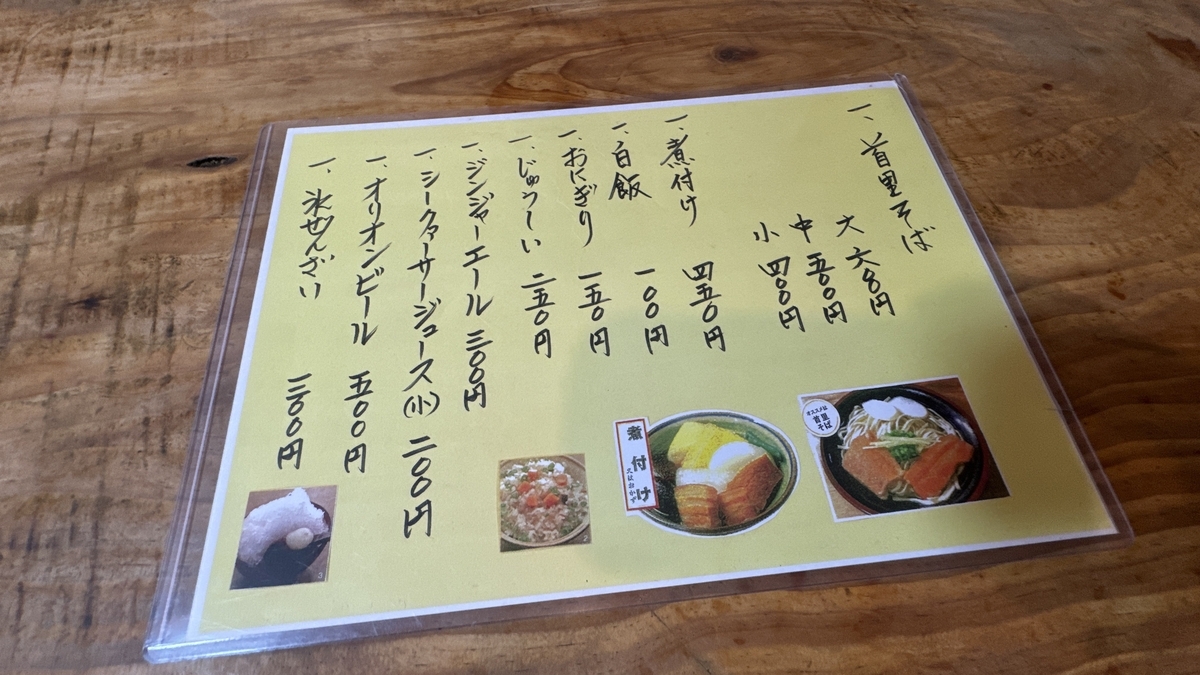 一、首里そば
大 六〇〇円
中 五〇〇円
小 四〇〇円
一、煮付け 四五〇円
一、白飯 一〇〇円
一、おにぎり 一五〇円
一、じゅうしい 二五〇円
一、ジンジャーエール 三〇〇円
一、シークァーサージュース(小) 二〇〇円
一、オリオンビール 五〇〇円
一、氷ぜんざい 三〇〇円
オススメは
首里
そば
煮付け
2
3